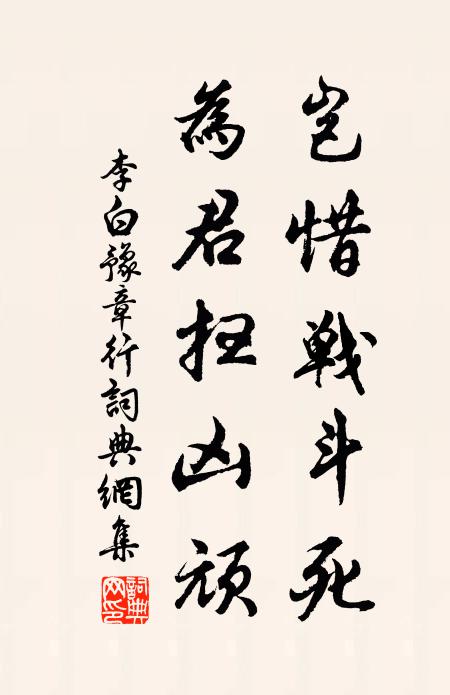 岂惜戦斗死
為君扫凶顽
李白豫章行詞典網集
詞典網印